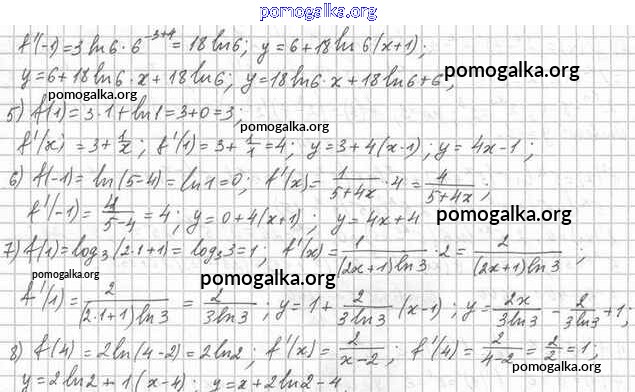 pomogalka.org
f'(-1)=3 ln6·6^(-3+4)=18 ln6; y=6+18 ln6(x+1);
y=6+18 ln6·x+18 ln6; y=18 ln6·x+18 ln6+6;
pomogalka.org
pomogalka.org
5) f(1)=3·1+ln1=3+0=3;
pomogalka.org
f'(x)=3+1/x; f'(1)=3+1/1=4; y=3+4(x-1); y=4x-1;
6) f(-1)=ln(5-4)=ln1=0; f'(x)=1/(5+4x)·4=4/(5+4x);
f'(-1)=4/(5-4)=4; y=0+4(x+1); y=4x+4
pomogalka.org
7) f(1)=log₃(2·1+1)=log₃3=1; f'(x)=1/((2x+1)ln3)·2=2/((2x+1)ln3);
pomogalka.org
pomogalka.org
f'(1)=2/((2·1+1)ln3)=2/(3ln3); y=1+2/(3ln3)(x-1); y=2x/(3ln3)-2/(3ln3)+1;
8) f(4)=2ln(4-2)=2ln2; f'(x)=2/(x-2); f'(4)=2/(4-2)=2/2=1;
pomogalka.org
y=2ln2+1(x-4); y=x+2ln2-4